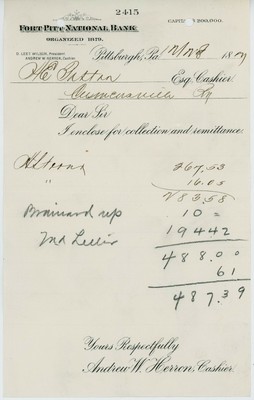 2415
FORT PITT NATIONAL BANK
CAPITAL $200,000.
ORGANIZED 1879.
D. LEET WILSON, President
ANDREW W. HERRON, Cashier
Pittsburgh, Pa 12/28 18
Esq. Cashier.
Curwensville Pa
Dear Sir
I enclose for collection and remittance.
Altoona 267.53
" 16.05
283.58
Brainard 10 =
194 42
488.00
61
487.39
Yours Respectfully
Andrew W. Herron, Cashier.